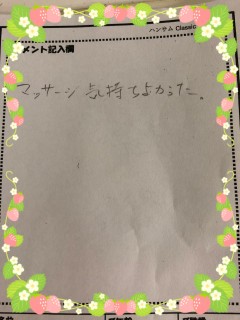 ハンサム Classic
メント記入欄
マッサージ気持ちよかった。